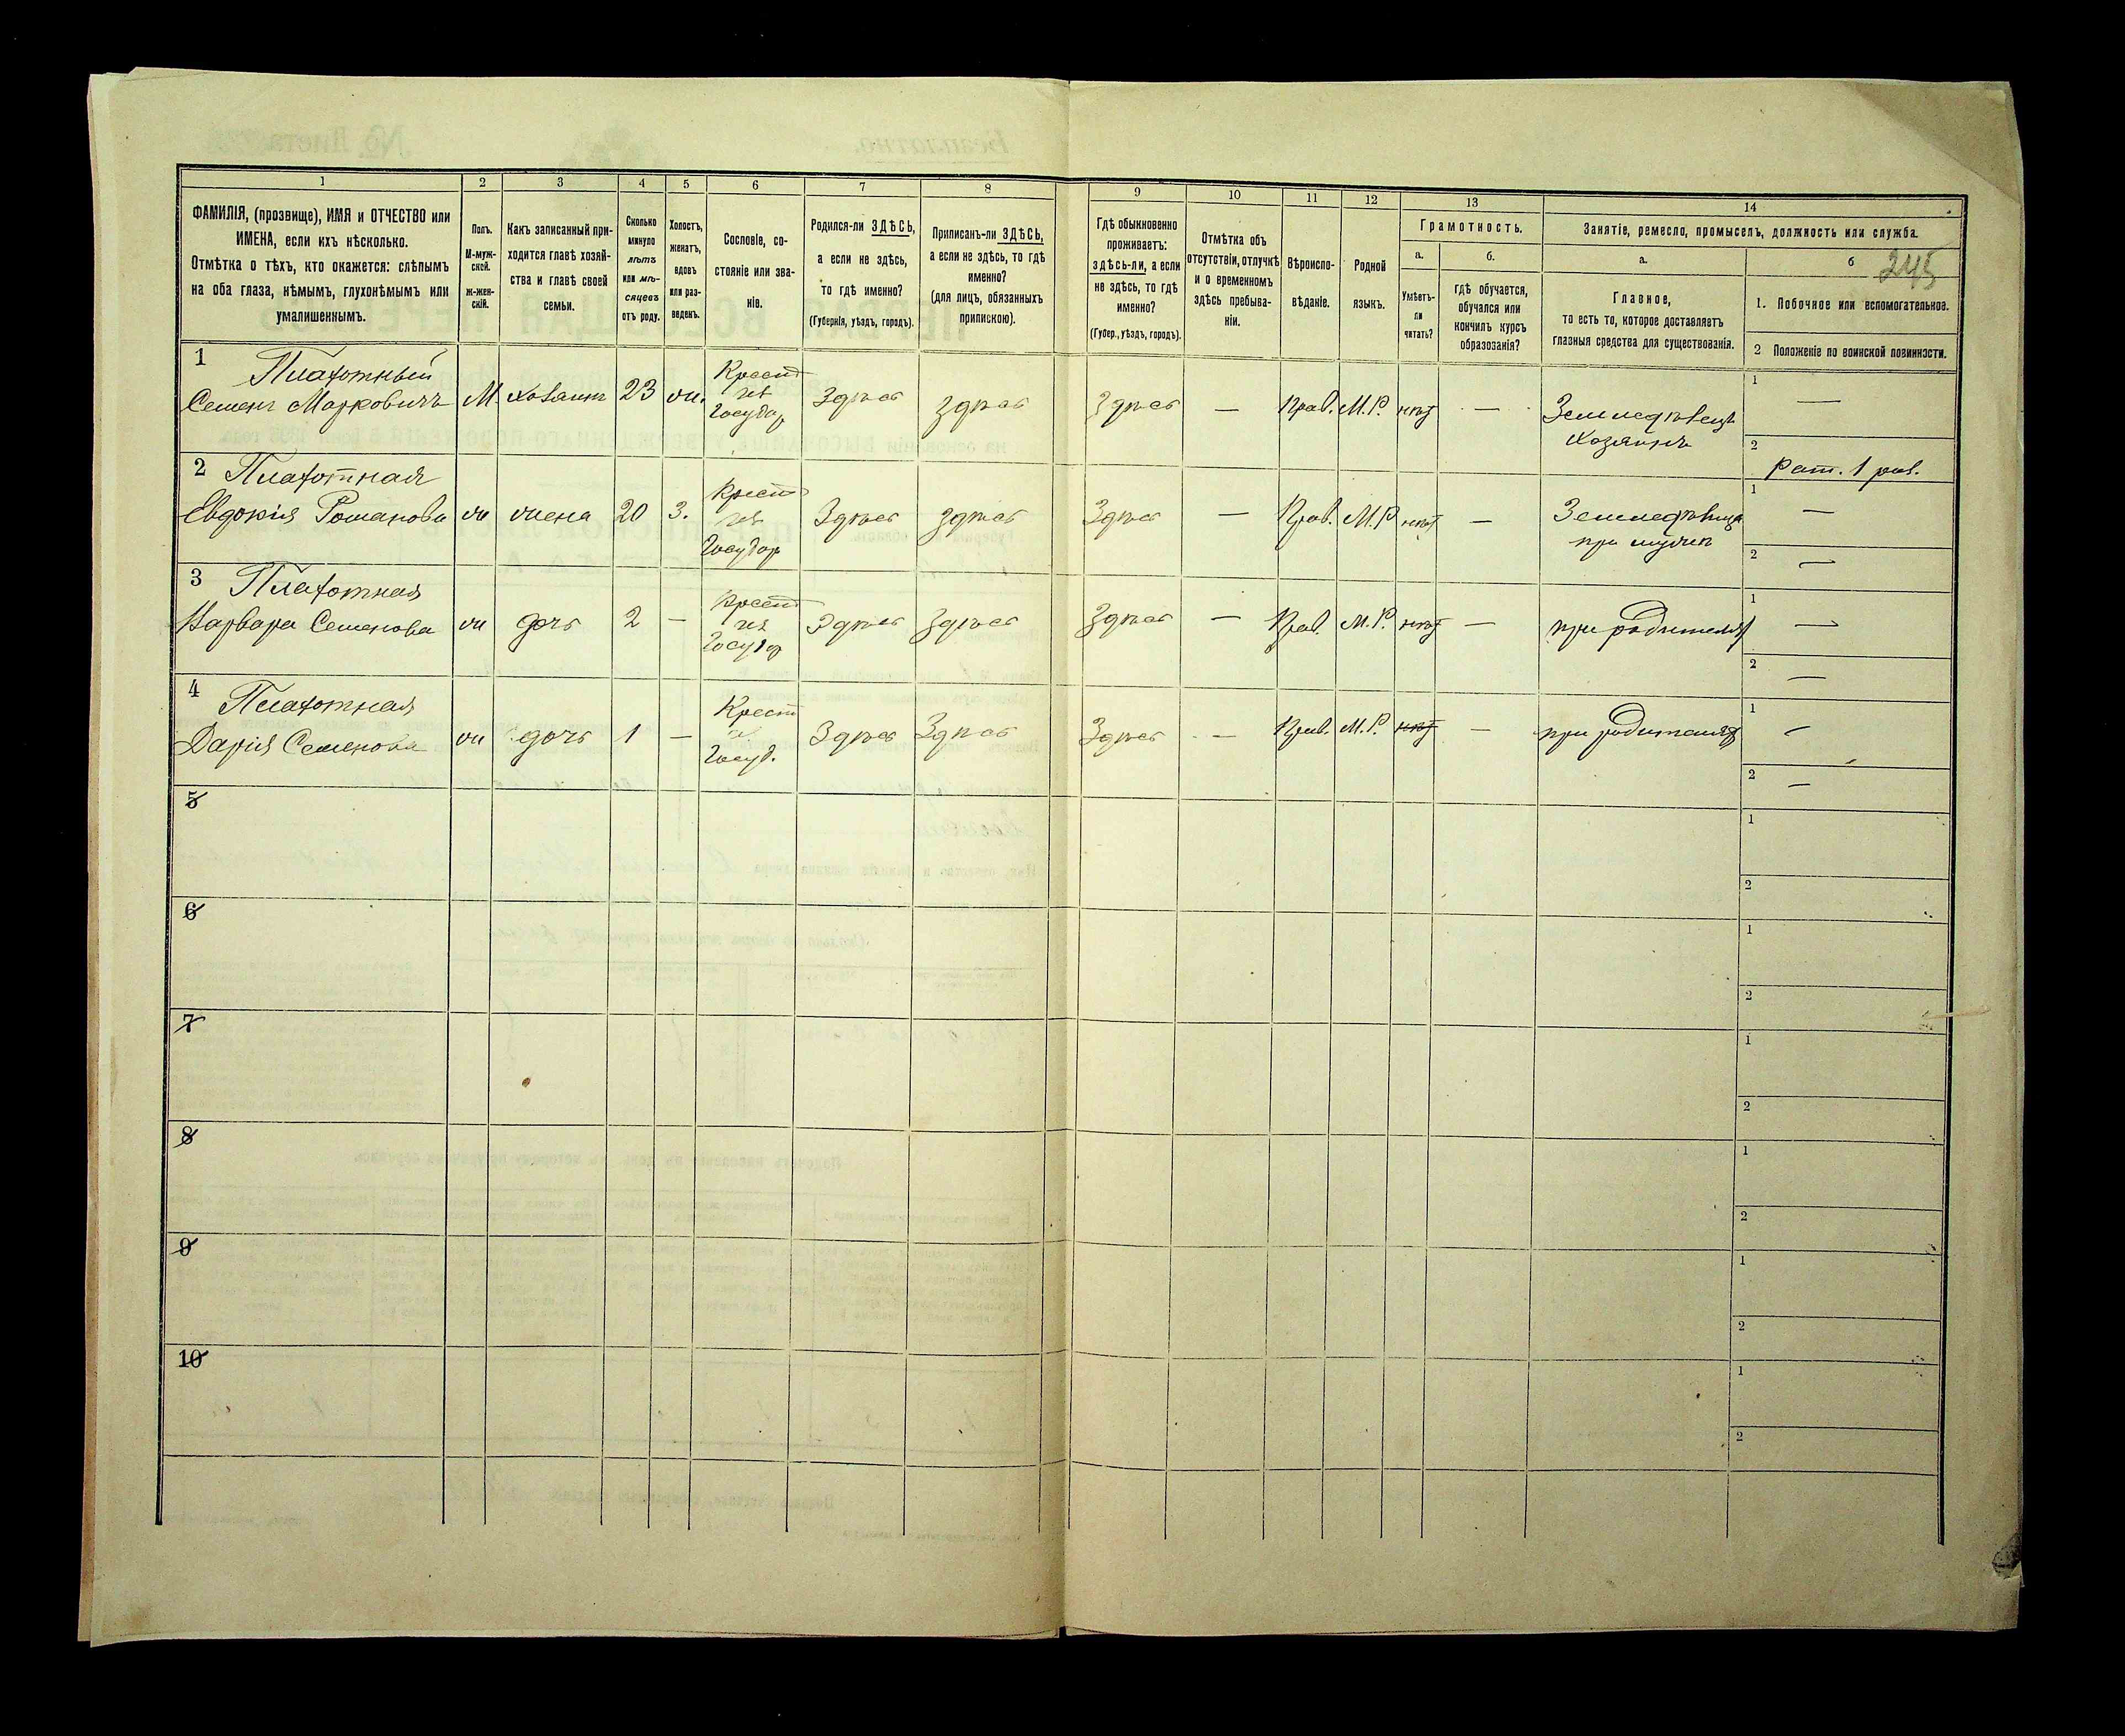 1
2
3
4
5
6
7
8
9
10
11
12
13
14
ФАМИЛІЯ, (прозвище), ИМЯ и ОТЧЕСТВО или
ИМЕНА, если ихъ нѣсколько.
Отмѣтка о тѣхъ, кто окажется: слѣпымъ
на оба глаза, нѣмымъ, глухонѣмымъ или
умалишеннымъ.
Полъ.
М-муж-
ской.
ж-жен-
скій.
Какъ записанный при-
ходится главѣ хозяй-
ства и главѣ своей
семьи.
Сколько
минуло
лѣтъ
или мѣ-
сяцевъ
отъ роду.
Холостъ,
женатъ,
вдовъ
или раз-
веденъ.
Сословіе, со-
стояніе или зва-
ніе.
Родился-ли ЗДѢСЬ,
а если не здѣсь,
то гдѣ именно?
(Губернія, уѣздъ, городъ).
Приписанъ-ли ЗДѢСЬ,
а если не здѣсь, то гдѣ
именно?
(для лицъ, обязанныхъ
припискою).
Гдѣ обыкновенно
проживаетъ:
здѣсь-ли, а если
не здѣсь, то гдѣ
именно?
(Губер., уѣздъ, городъ).
Отмѣтка объ
отсутствіи, отлучкѣ
и о временномъ
здѣсь пребыва-
ніи.
Вѣроиспо-
вѣданіе.
Родной
языкъ.
Грамотность.
а.
Умѣетъ-
ли
читать?
б.
гдѣ обучается,
обучался или
кончилъ курсъ
образованія?
Занятіе, ремесло, промыселъ, должность или служба.
а.
Главное,
то есть то, которое доставляетъ
главныя средства для существованія.
б
245
1. Побочное или вспомогательное.
2 Положеніе по воинской повинности.
1
Плахотный
Семенъ Марковичъ
М.
хозаинъ
23
ж.
Крест
изъ
Государ
Здѣсь
здѣсь
Здѣсь
—
Прав.
М.Р.
нѣт
—
Земледѣлецъ
хозяинъ
1
—
2
Рат. 1 раз.
2
Плахотная
Евдокія Романова
ж
жена
20
З.
Крест
изъ
Государ
Здѣсь
здѣсь
Здѣсь
—
Прав.
М.Р
нѣт
—
Земледѣлица
при мужѣ
1
—
2
—
3
Плахотная
Варвара Семенова
ж
дочь
2
—
Крест
изъ
Государ
Здѣсь
здѣсь
здѣсь
—
Прав.
М.Р.
нѣт
—
при родителях
1
—
2
—
4
Плахотная
Дарія Семенова
ж
дочь
1
—
Крест
Госуд.
Здѣсь
Здѣсь
Здѣсь
—
Прав.
М.Р.
нѣт
—
при родителях
1
—
2
—
5
1
2
6
1
2
7
1
2
8
1
2
9
1
2
10
1
2